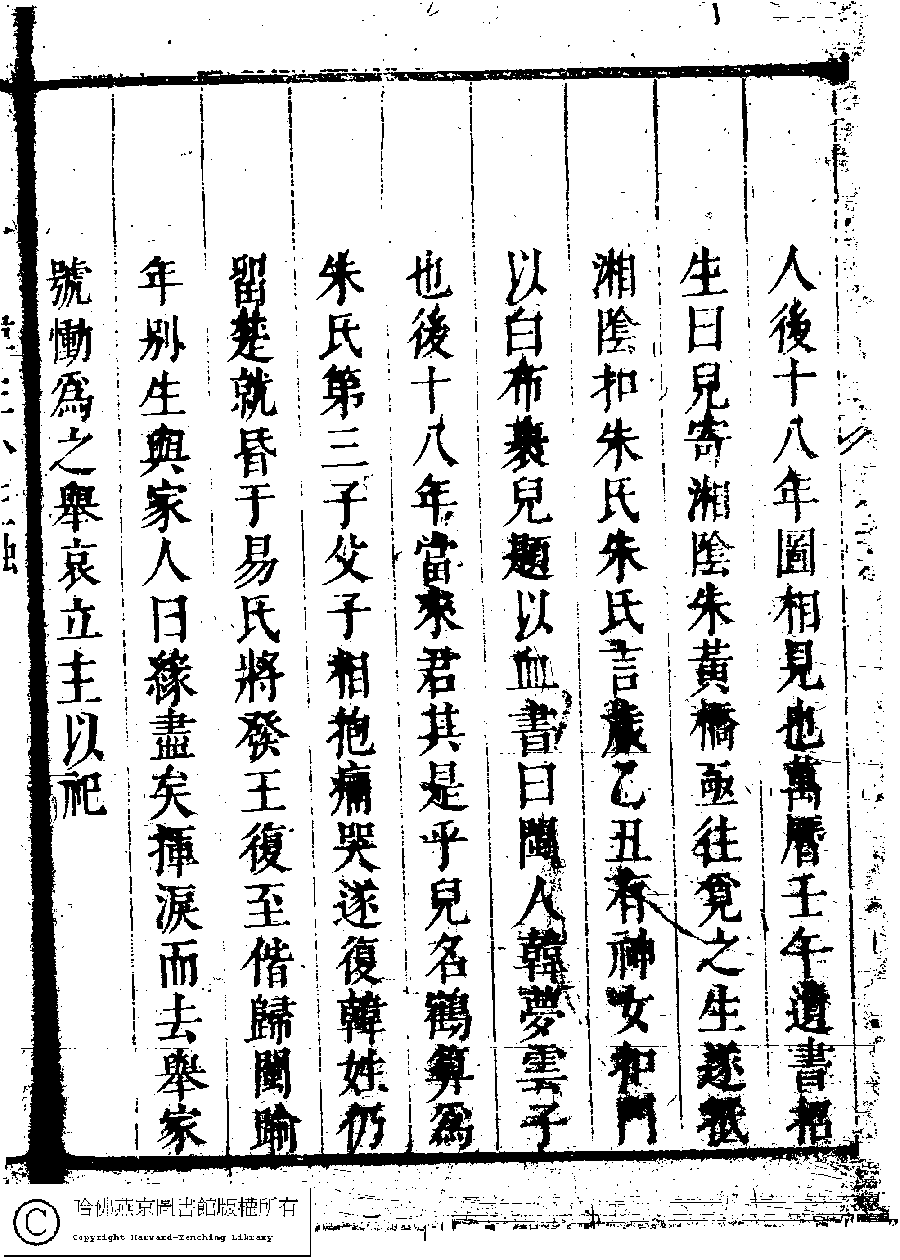 人後十八年圖相見也萬曆壬午遺書招
生曰兒寄湘陰朱黃橋亟往覓之生遂抵
湘陰扣朱氏朱氏言歲乙丑有神女扣門
以白布裹兒題以血書曰閩人韓夢雲子
也後十八年當來君其是乎兒名鶴算爲
朱氏第三子父子相抱痛哭遂復韓姓仍
留楚就昏于易氏將發王復至偕歸閩踰
年別生與家人曰緣盡矣揮淚而去舉家
號慟爲之舉哀立主以祀
哈佛燕京圖書館版權所有
Copyright Harvard-Yenching Library